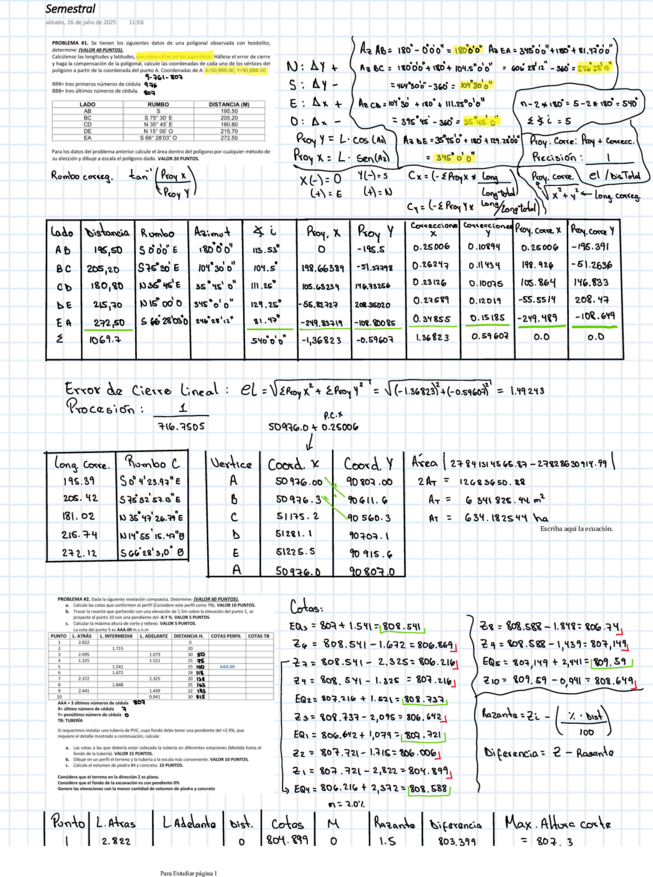 Semestral
sábado, 26 de julio de 2025 11:56
PROBLEMA #1. Se tienen los siguientes datos de una poligonal observada con teodolito,
determine: (VALOR 40 PUNTOS).
Calcúlense las longitudes y latitudes,
Hállese el error de cierre
y haga la compensación de la poligonal, calcule las coordenadas de cada uno de los vértices del
polígono a partir de la coordenada del punto A. Coordenadas de A: X=50,RRR.00; Y=90,BBB.00
9-761-807
RRR= tres primeros números de cédula 976
BBB= tres últimos números de cédula. 807
LADO RUMBO DISTANCIA (M)
AB S 195.50
BC S 75° 30' E 205.20
CD N 35° 45' E 180.80
DE N 15° 00' O 215.70
EA S 66° 28'03" O 272.50
Para los datos del problema anterior calcule el área dentro del polígono por cualquier método de
su elección y dibuje a escala el polígono dado. VALOR 20 PUNTOS.
Rombo correg. tan⁻¹ (Proy X / Proy Y)
N: Δy +
S: Δy -
E: Δx +
O: Δx -
Az AB = 180° - 0°0'0" = 180°0'0" Az EA = 345°0'0" + 180° + 81.47°0'0"
Az BC = 180°0'0" + 180° + 104.5°0'0" = 606°28'12" - 360° = 246°28'12"
= 464°30'0" - 360° = 104°30'0"
Az CD = 104°30' + 180° + 111.25°0'0"
= 395°45' - 360° = 35°45'0"
Az DE = 35°45'0" + 180° + 129.25°00"
= 345°0'0"
n-2*180° = 5-2*180° = 540°
Σ∡i = 5
Proy Y = L · cos (Az)
Proy X = L · sen (Az)
X(-) = O Y(-) = S
(+) = E (+) = N
Cx = (-ΣProy X * Long / Long total)
Cy = (-ΣProy Y * Long / Long total)
Proy. Corre: Proy + Correcc.
Precisión: 1 / el / DisTotal
Proy. corre.
√x² + y² ← Long. correg.
Lado Distancia Rumbo Azimut ∡ i Proy. X Proy Y Correcciones X Correcciones Y Proy. corre X Proy. corre Y
AB 195,50 S 0°0'0" E 180°0'0" 113.53° 0 -195.5 0.25006 0.10894 0.25006 -195.391
BC 205,20 S75°30' E 104°30'0" 104.5° 198.66389 -51.37798 0.26247 0.11434 198.926 -51.2636
CD 180,80 N35°45' E 35°45'0" 111.25° 105.63234 146.73256 0.23126 0.10075 105.864 146.833
DE 215,70 N15°00'0 345°0'0" 129.25° -55.82727 208.35020 0.27589 0.12019 -55.5514 208.47
EA 272,50 S 66°28'03"O 246°28'12" 81.47° -249.83719 -108.80085 0.34855 0.15185 -249.489 -108.649
Σ 1069.7 540°0'0" -1,36823 -0.59607 1.36823 0.59607 0.0 0.0
Error de Cierre Lineal: el = √ΣProy X² + ΣProy Y² = √(-1.36823)² + (-0.59607)² = 1.49243
Procesión: 1 / 716.7505
P.C.X
50976.0 + 0.25006
Long. Corre. Rumbo C
195.39 S 0°4'23.97" E
205.42 S75°32'57.0" E
181.02 N 35°47'26.79" E
215.74 N14°55'15.47" O
272.12 S66°28'3,0" O
Vertice Coord. X Coord. Y
A 50976.00 90807.00
B 50976.3 90611.6
C 51175.2 90560.3
D 51281.1 90707.1
E 51225.5 90915.6
A 50976.0 90807.0
Área | 27841314565.87 - 27828630914.99 |
2AT = 12683650.88
AT = 6 341825.44 m²
AT = 634.182544 ha
Escriba aquí la ecuación.
PROBLEMA #2. Dada la siguiente nivelación compuesta. Determine: (VALOR 60 PUNTOS).
a. Calcule las cotas que conforman el perfil (Considere este perfil como TN). VALOR 10 PUNTOS.
b. Trazar la rasante que partiendo con una elevación de 1.5m sobre la elevación del punto 1, se
proyecte al punto 10 con una pendiente del -X,Y %. VALOR 5 PUNTOS.
c. Calcular la máxima altura de corte y relleno. VALOR 5 PUNTOS.
La cota del punto 5 es AAA.00 m.s.n.m
PUNTO L. ATRÁS L. INTERMEDIA L. ADELANTE DISTANCIA H. COTAS PERFIL COTAS TB
1 2.822 0
2 1.715 20
3 2.095 1.079 30 50
4 1.325 1.521 25 75
5 1.541 25 100 AAA.00
6 1.672 18 118
7 2.372 2.325 20 138
8 1.848 25 163
9 2.441 1.439 22 185
10 0.941 30 215
AAA = 3 últimos números de cédula 807
X= último número de cédula 7
Y= penúltimo número de cédula 0
TB: TUBERÍA
Si requerimos instalar una tubería de PVC, cuyo fondo debe tener una pendiente del +2.0%, que
requiere el detalle mostrado a continuación, calcule:
a. Las cotas a las que debería estar colocado la tubería en diferentes estaciones (Medida hasta el
fondo de la tubería). VALOR 15 PUNTOS.
b. Dibuje en un perfil el terreno y la tubería a la escala más conveniente. VALOR 10 PUNTOS.
c. Calcule el volumen de piedra #4 y concreto. 15 PUNTOS.
Considere que el terreno en la dirección Z es plano.
Considere que el fondo de la excavación es con pendiente 0%
Genere las elevaciones con la menor cantidad de volumen de piedra y concreto
Cotas:
EQ3 = 807 + 1.541 = 808.541
Z6 = 808.541 - 1.672 = 806.869
Z7 = 808.541 - 2,325 = 806.216
Z4 = 808.541 - 1.325 = 807.216
EQ2 = 807.216 + 1.521 = 808.737
Z3 = 808.737 - 2,095 = 806.642
EQ1 = 806.642 + 1,079 = 807.721
Z2 = 807.721 - 1.715 = 806.006
Z1 = 807.721 - 2,822 = 804.899
EQ4 = 806.216 + 2,372 = 808.588
m = 7.0%
Z8 = 808.588 - 1.848 = 806.74
Z9 = 808.588 - 1,439 = 807,149
EQ5 = 807,149 + 2,441 = 809.59
Z10 = 809.59 - 0,941 = 808.649
Razante = Zi - (% · Dist / 100)
Diferencia = Z - Rasante
Punto L. Atras L. Adelante Dist. Cotas M Razante Diferencia Max. Altura corte
1 2.822 0 804.899 0 1.5 803.399 = 807.3
Para Estudiar página 1